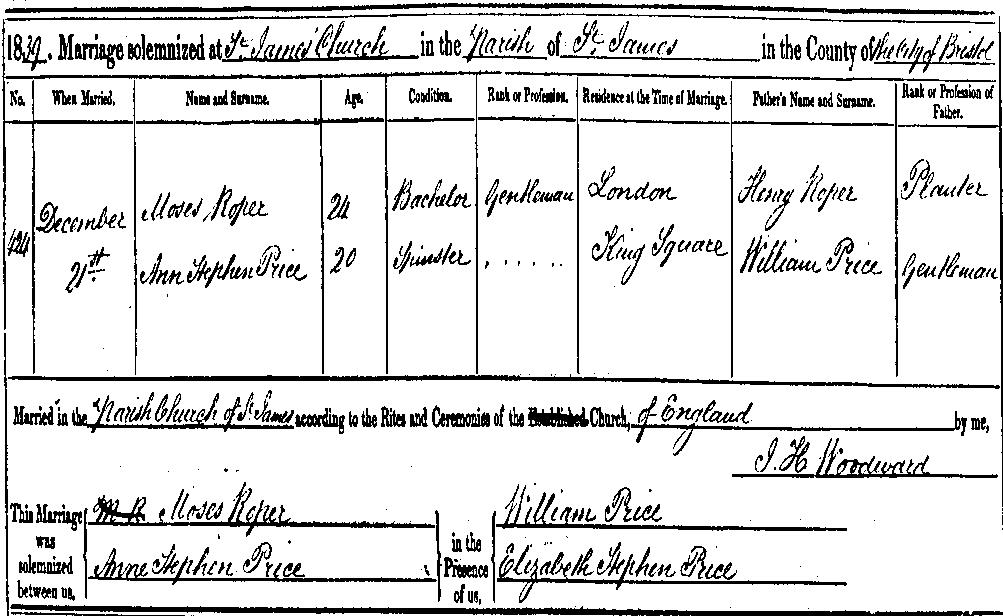 1839. Marriage solemnized at St. James' Church in the Parish of St. James in the County of the City of Bristol
No. When Married. Name and Surname. Age. Condition. Rank or Profession. Residence at the Time of Marriage. Father's Name and Surname. Rank or Profession of Father.
424 December 21st
Moses Roper 24 Bachelor Gentleman London Henry Roper Planter
Ann Stephen Price 20 Spinster . . . . . . King Square William Price Gentleman
Married in the Parish Church of St. James according to the Rites and Ceremonies of the Established Church, of England by me,
J. H. Woodward
This Marriage was solemnized between us, M R Moses Roper in the Presence of us, William Price
Anne Stephen Price Elizabeth Stephen Price